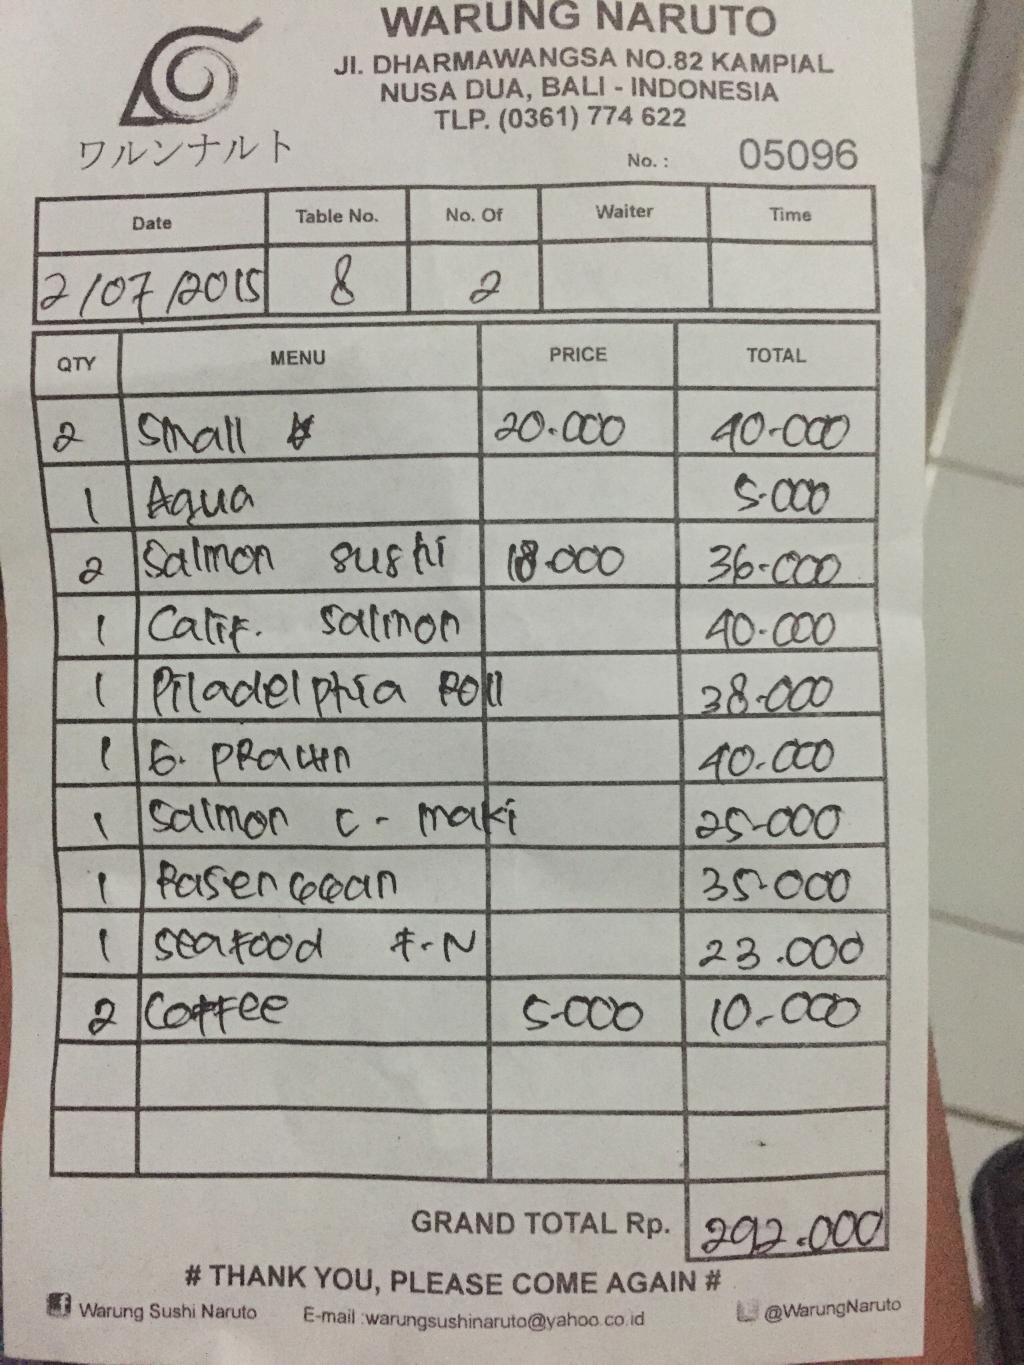 WARUNG NARUTO
Jl. DHARMAWANGSA NO.82 KAMPIAL
NUSA DUA, BALI - INDONESIA
TLP. (0361) 774 622
ワルンナルト
No. : 05096
Date Table No. No. Of Waiter Time
2/07/2015 8 2
QTY MENU PRICE TOTAL
2 Small 20.000 40.000
1 Aqua 5.000
2 Salmon sushi 18.000 36.000
1 Calif. Salmon 40.000
1 Piladelphia Roll 38.000
1 PRawn 40.000
1 Salmon c - maki 25.000
1 35.000
1 Seafood F.N 23.000
2 Coffee 5.000 10.000
GRAND TOTAL Rp. 292.000
# THANK YOU, PLEASE COME AGAIN #
f Warung Sushi Naruto E-mail :warungsushinaruto@yahoo.co.id @WarungNaruto